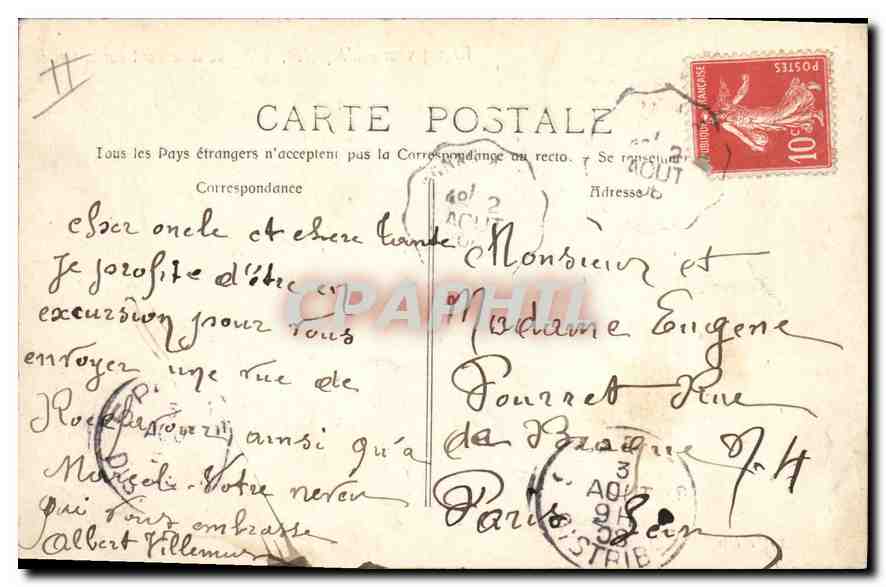 CARTE POSTALE
Tous les Pays étrangers n'acceptent pas la Correspondance au recto.
Correspondance
Adresse
RÉPUBLIQUE FRANÇAISE
POSTES
10 c
2
AOUT
2
AOUT
Cher oncle et chère tante
Je profite d'être en
excursion pour vous
envoyer une vue de
ainsi qu'à
Marcel. Votre neveu
qui vous embrasse
Albert Villemur
Monsieur et
Madame Eugène
Pourret Rue
de N. 4
Paris Seine
3
AOUT
9H
DISTRIB
CPAPHIL